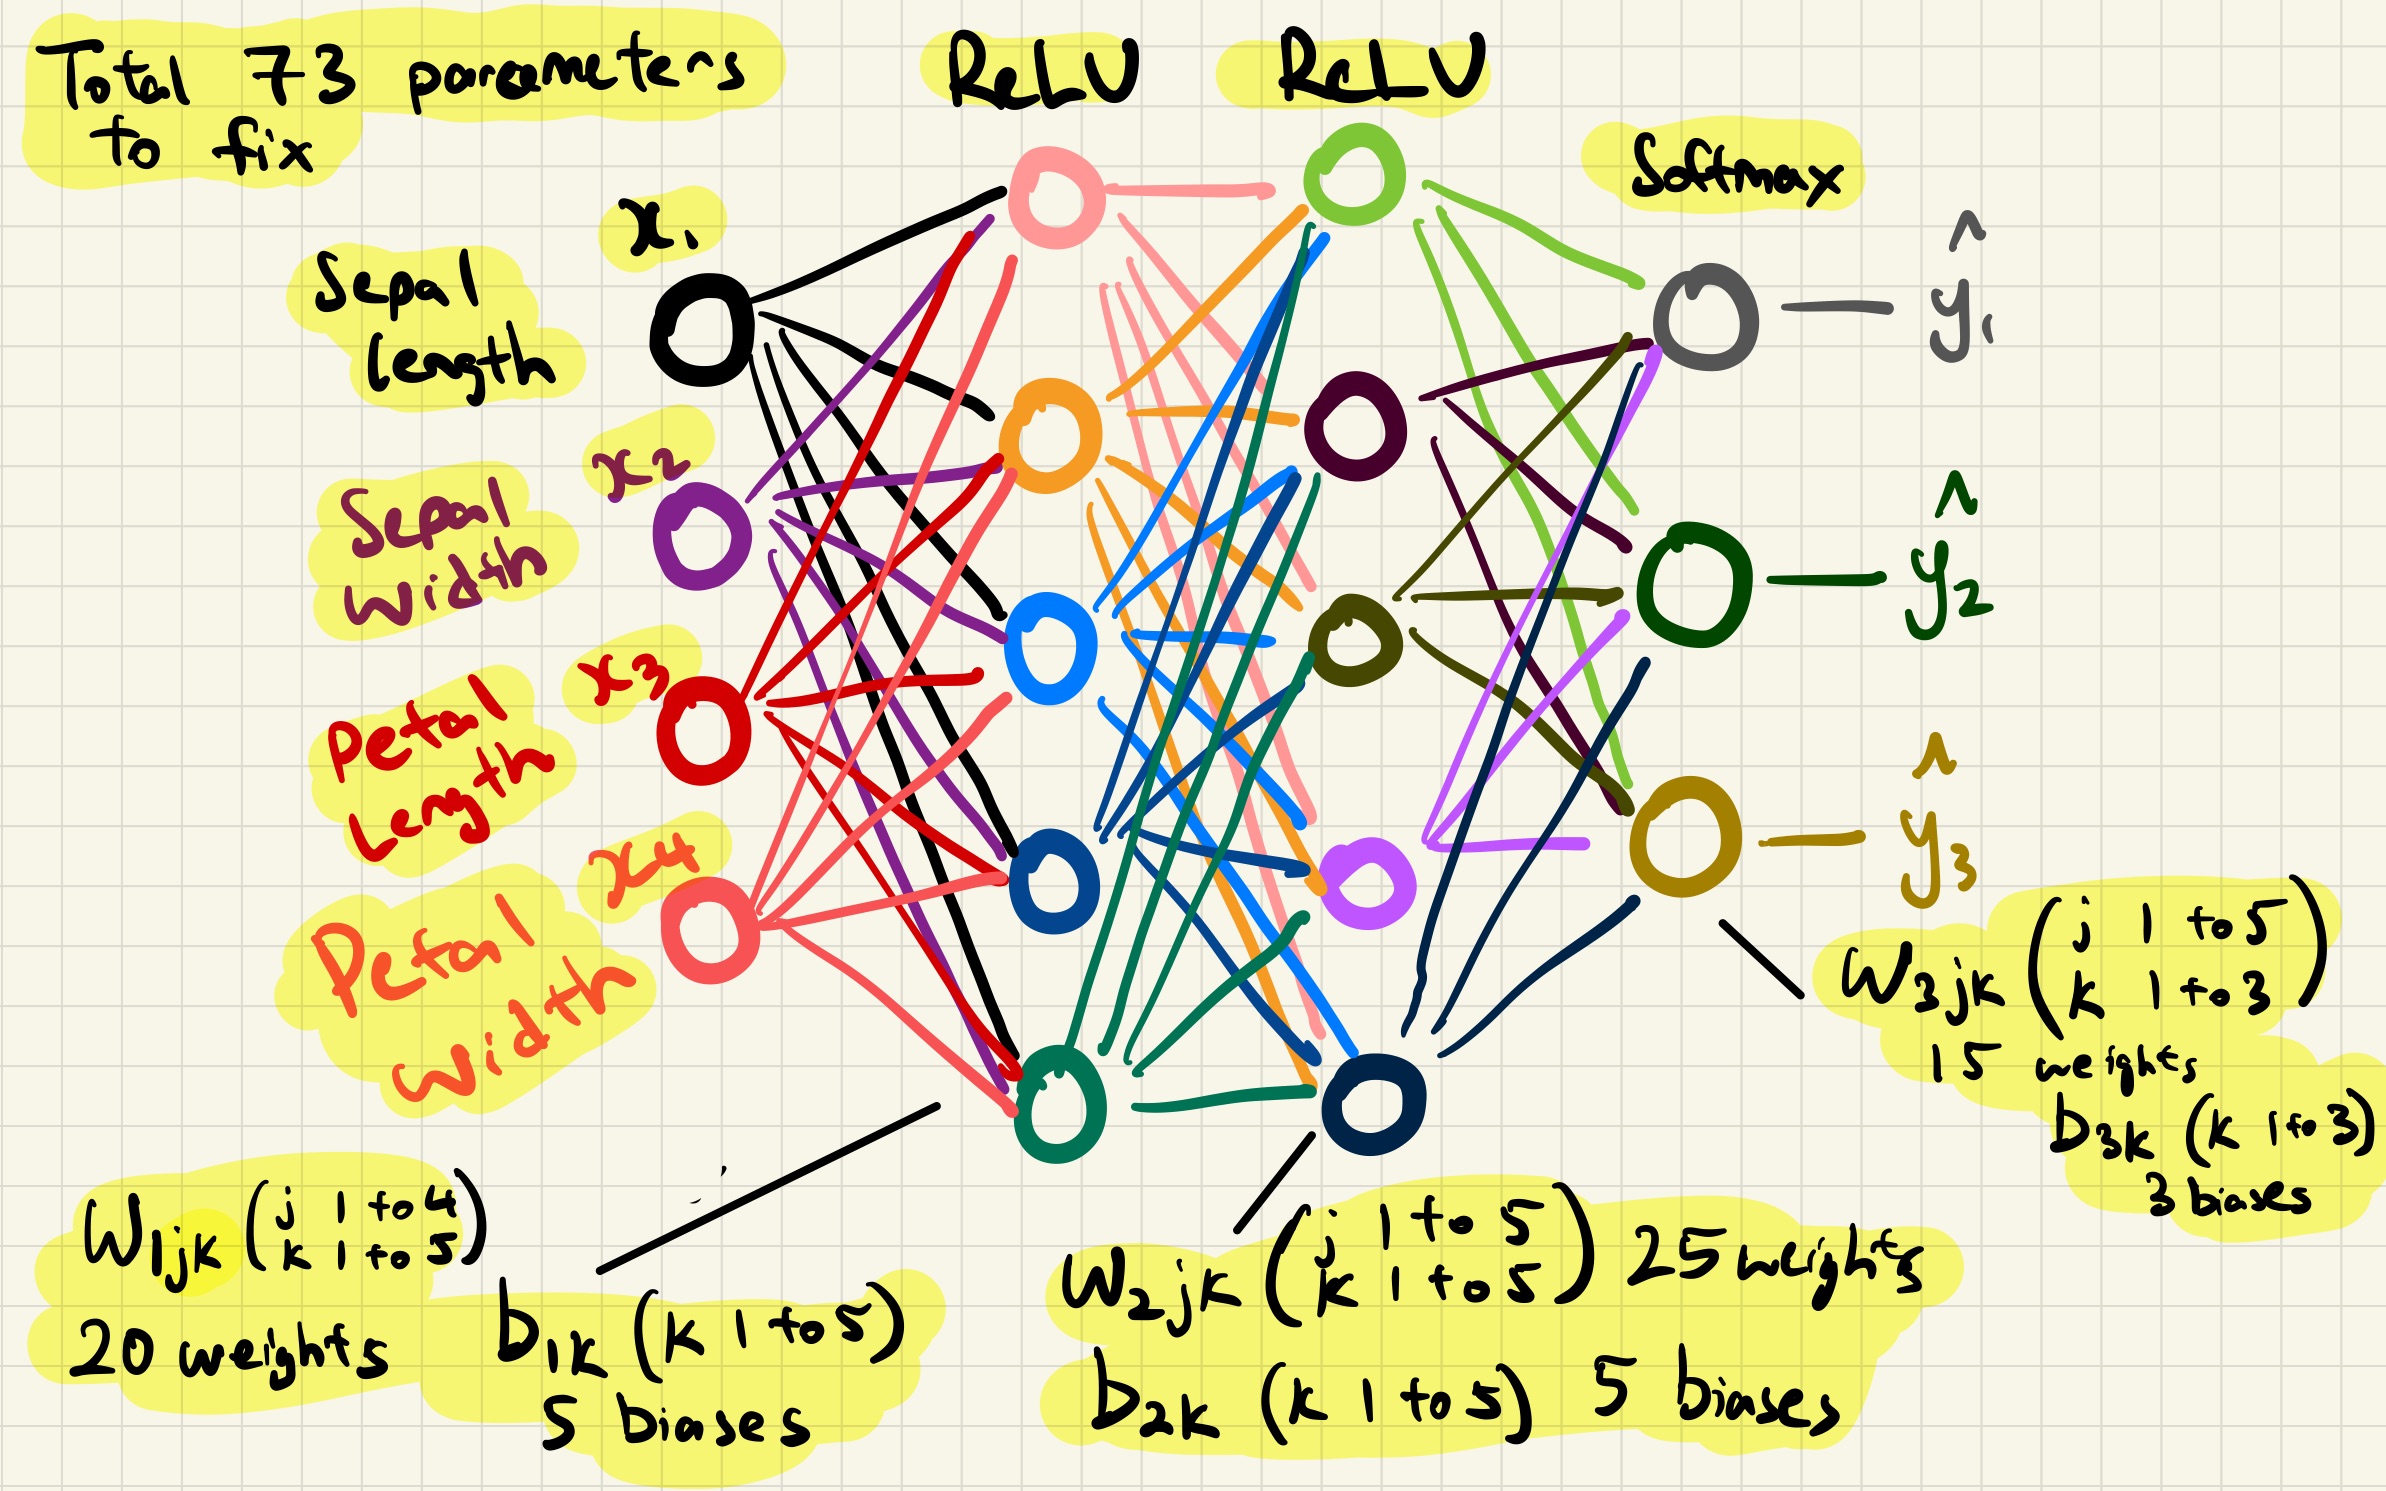 Total 73 parameters
to fix
ReLU
ReLU
Softmax
x₁
Sepal
length
x2
Sepal
Width
x3
Petal
Length
x4
Petal
Width
ŷ₁
ŷ₂
ŷ₃
W₁jk (j 1 to 4
k 1 to 5)
20 weights
b₁k (k 1 to 5)
5 biases
W₂jk (j 1 to 5
k 1 to 5) 25 weights
b₂k (k 1 to 5) 5 biases
W₃jk (j 1 to 5
k 1 to 3)
15 weights
b₃k (k 1 to 3)
3 biases